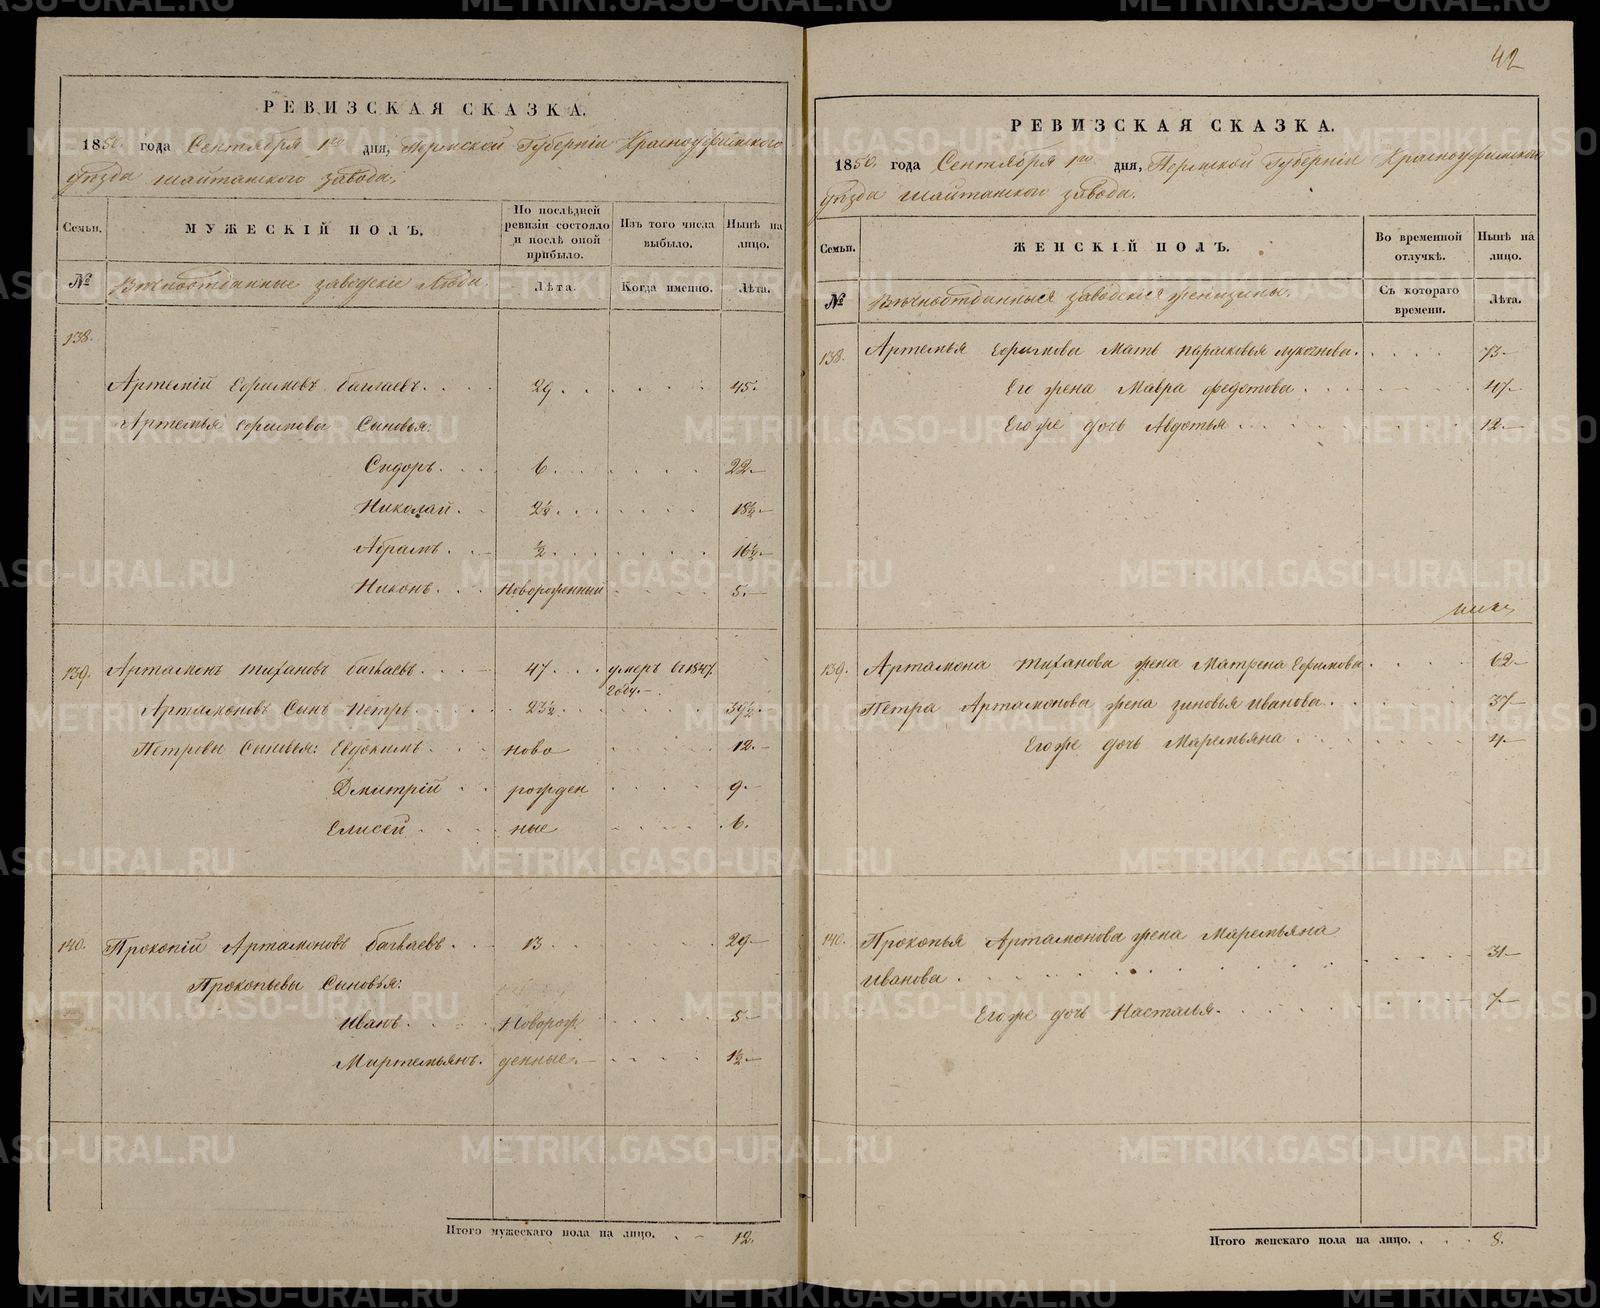 РЕВИЗСКАЯ СКАЗКА.
1850. года Сентября 1го дня, Пермской Губерніи Красноуфимского
уѣзда шайтанского завода.
Семьи.
МУЖЕСКІЙ ПОЛЪ.
По послѣдней
ревизіи состояло
и послѣ оной
прибыло.
Изъ того числа
выбыло.
Нынѣ на
лицо.
№
Вѣчноотданные заводскіе Люди.
Лѣта.
Когда именно.
Лѣта.
138.
Артемій Ефимовъ багваевъ. 29. 45.
Артемья Ефимова Сыновья:
Сидоръ. 6. 22.
Николай. 2½. 18½.
Абрамъ. ½. 16½.
Никонъ. Новорожденный 5.
139. Артамонъ тихановъ багваевъ. 47. умеръ въ 1847.
году.
Артамоновъ Сынъ Петръ. 23½. 39½.
Петровы Сыновья: Евдокимъ. ново 12.
Дмитрій рожден 9.
Елисей ные 6.
140. Прокопій Артамоновъ багваевъ. 13. 29.
Прокопьевы Сыновья:
Иванъ. Новорож 5.
Мартемьянъ. денные. 1½.
Итого мужескаго пола на лицо. 12.
42
РЕВИЗСКАЯ СКАЗКА.
1850. года Сентября 1го дня, Пермской Губерніи Красноуфимского
уѣзда шайтанского завода.
Семьи.
ЖЕНСКІЙ ПОЛЪ.
Во временной
отлучкѣ.
Нынѣ на
лицо.
№
Вѣчноотданныя заводскіе женщины.
Съ котораго
времени.
Лѣта.
138. Артемья Ефимова Мать парасковья 73.
Его жена Мавра федотова. 47.
Его же дочь Авдотья 12.
139. Артамона тиханова жена Матрена Ефимова. 62.
Петра Артамонова жена зиновья иванова. 37
Его же дочь Маремьяна 4.
140. Прокопья Артамонова жена Маремьяна
иванова. 31.
Его же дочь Насталья. 7.
Итого женскаго пола на лицо. 8.
METRIKI.GASO-URAL.RU